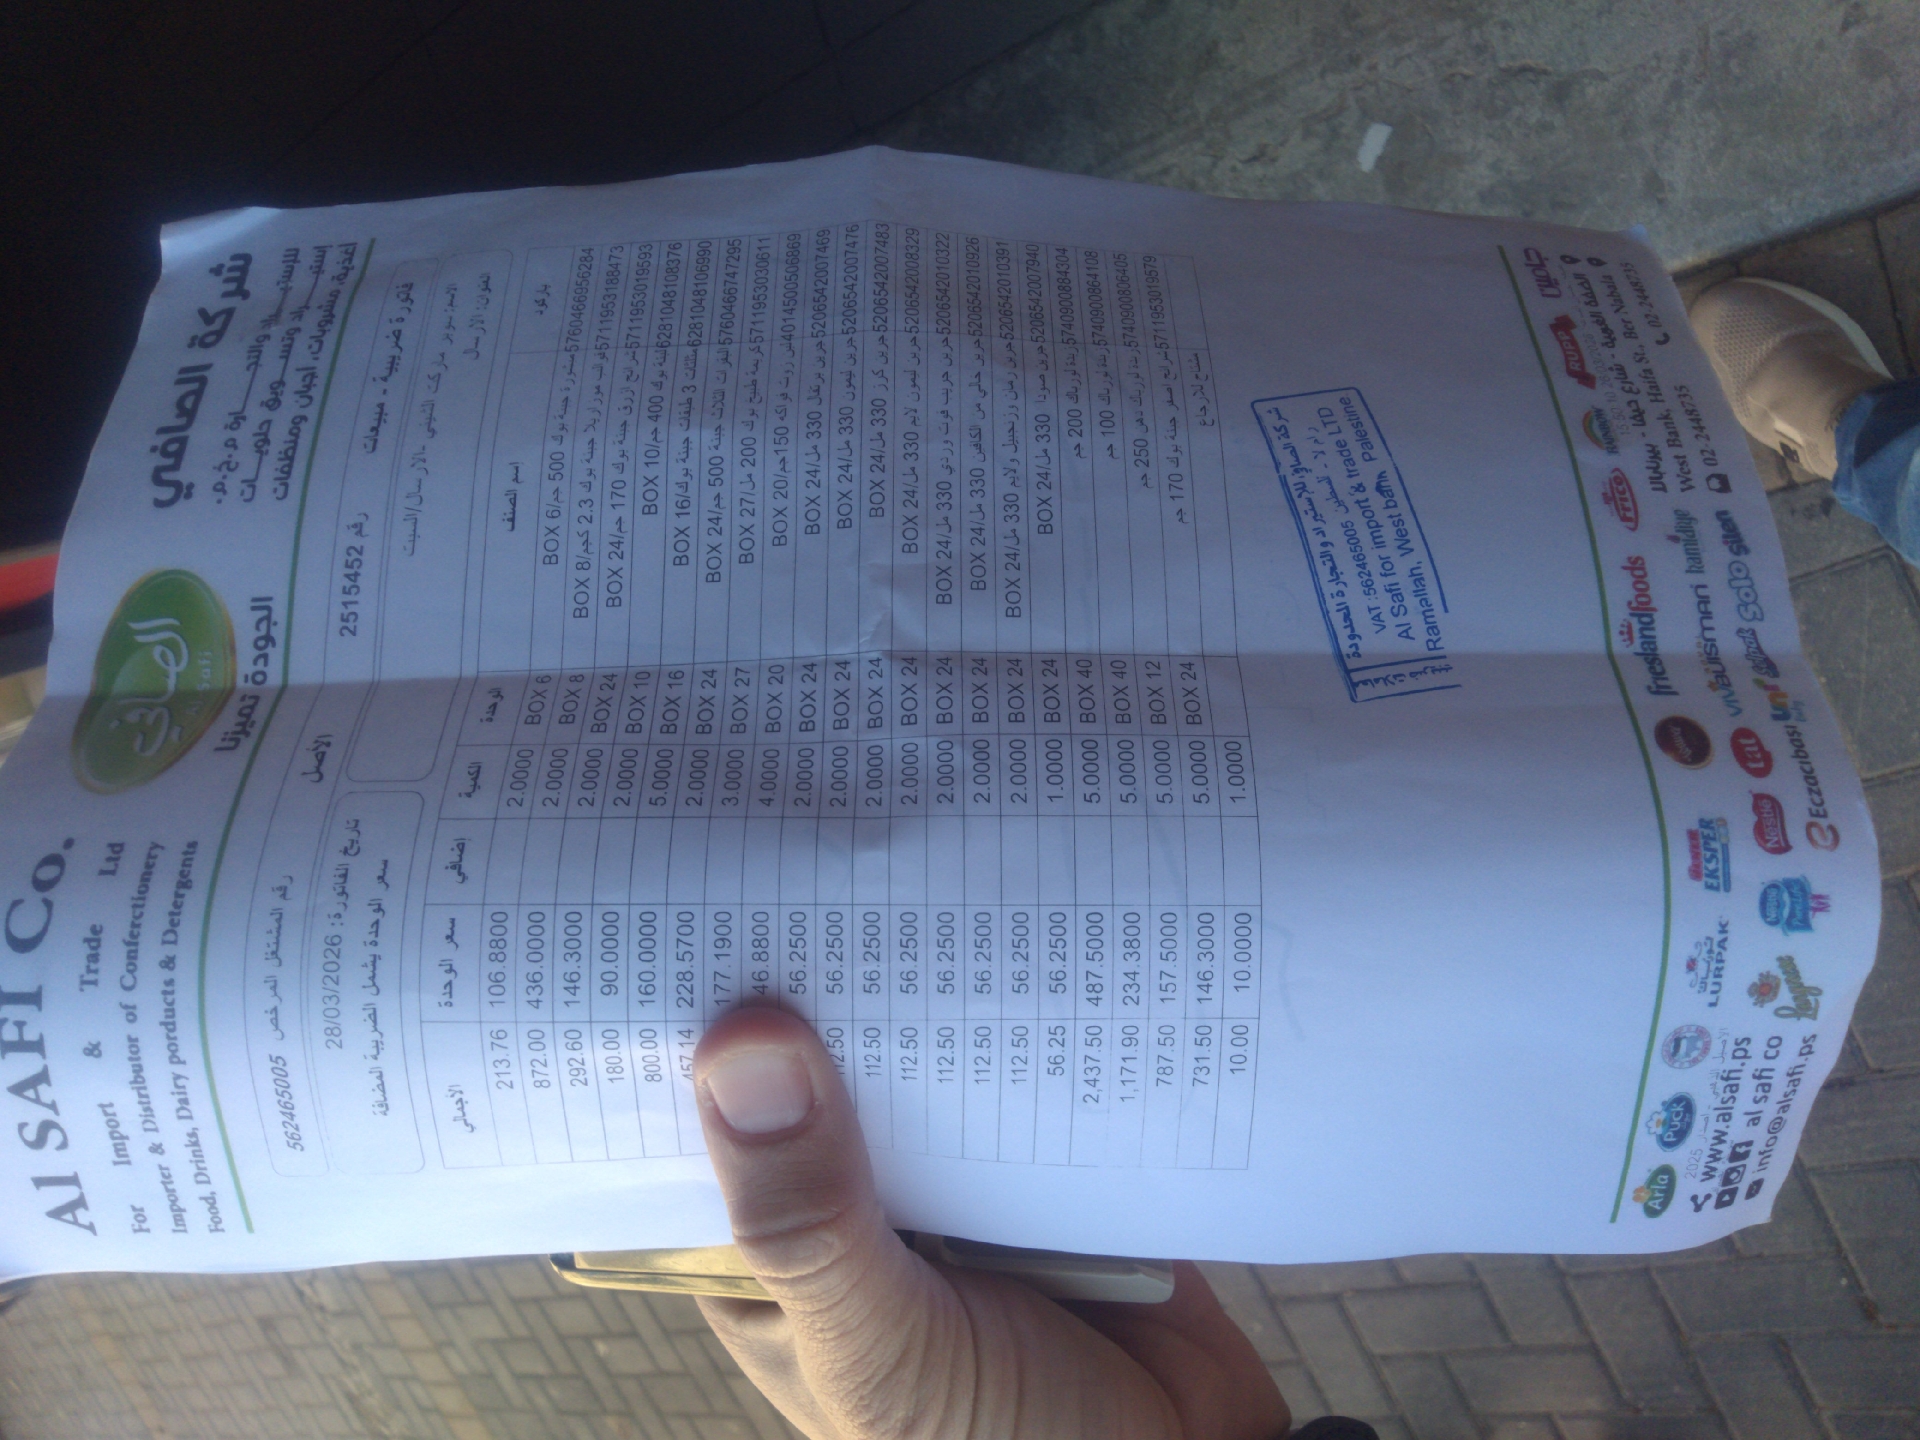 Al SAFI Co.
For Import & Trade Ltd
Importer & Distributor of Confectionery
Food, Drinks, Dairy porducts & Detergents
الصافي
Al Safi
الجودة تميزنا
شركة الصافي
للإستيراد والتجارة م.خ.م.
إستيراد وتسويق حلويات
أغذية، مشروبات، اجبان ومنظفات
رقم المشتغل المرخص 562465005
الأصل
رقم 2515452
فاتورة ضريبية - مبيعات
تاريخ الفاتورة: 28/03/2026
سعر الوحدة يشمل الضريبة المضافة
باركود إسم الصنف الوحدة الكمية إضافي سعر الوحدة الأجمالي
5760466956284 جبنة بوك 500 جم/BOX 6 BOX 6 2.0000 106.8800 213.76
5711953188473 جبنة بوك 2.3 كجم/BOX 8 BOX 8 2.0000 436.0000 872.00
5711953019593 جبنة بوك 170 جم/BOX 24 BOX 24 2.0000 146.3000 292.60
6281048108376 بوك 400 جم/BOX 10 BOX 10 2.0000 90.0000 180.00
6281048106990 مثلثات 3 طبقات جبنة بوك/BOX 16 BOX 16 5.0000 160.0000 800.00
5760466747295 جبنة 500 جم/BOX 24 BOX 24 2.0000 228.5700 457.14
5711953030611 كريمة طبخ بوك 200 مل/BOX 27 BOX 27 3.0000 177.1900
4014500506869 فواكه 150جم/BOX 20 BOX 20 4.0000 46.8800
5206542007469 جرين برتقال 330 مل/BOX 24 BOX 24 2.0000 56.2500
5206542007476 جرين ليمون 330 مل/BOX 24 BOX 24 2.0000 56.2500
5206542007483 جرين كرز 330 مل/BOX 24 BOX 24 2.0000 56.2500 112.50
5206542008329 جرين ليمون لايم 330 مل/BOX 24 BOX 24 2.0000 56.2500 112.50
5206542010322 جرين جريب فروت وردي 330 مل/BOX 24 BOX 24 2.0000 56.2500 112.50
5206542010926 جرين خالي من الكافيين 330 مل/BOX 24 BOX 24 2.0000 56.2500 112.50
5206542010391 جرين رمان وزنجبيل ولايم 330 مل/BOX 24 BOX 24 2.0000 56.2500 112.50
5206542007940 جرين صودا 330 مل/BOX 24 BOX 24 1.0000 56.2500 56.25
5740900884304 زبدة لورباك 200 جم BOX 40 5.0000 487.5000 2,437.50
5740900864108 زبدة لورباك 100 جم BOX 40 5.0000 234.3800 1,171.90
5740900806405 زبدة لورباك دهن 250 جم BOX 12 5.0000 157.5000 787.50
5711953019579 شرائح اصفر جبنة بوك 170 جم BOX 24 5.0000 146.3000 731.50
مشتاح للارجاع 1.0000 10.0000 10.00
شركة الصافي للإستيراد والتجارة المحدودة
VAT:562465005
Al Safi for import & trade LTD
Ramallah, West bank Palestine
Arla
Puck
LURPAK
لورباك
EKSPER
frieslandfoods
Frico
RAINBOW
RUPP
Nestle
tat
VIVBUISMAN
hamidiye
Eczacıbaşı
Uni
Solo
Silen
www.alsafi.ps
al safi co
info@alsafi.ps
الضفة الغربية - شارع حيفا - بيرنبالا
West Bank, Haifa St., Ber Nabala
02-2448735
02-2448735